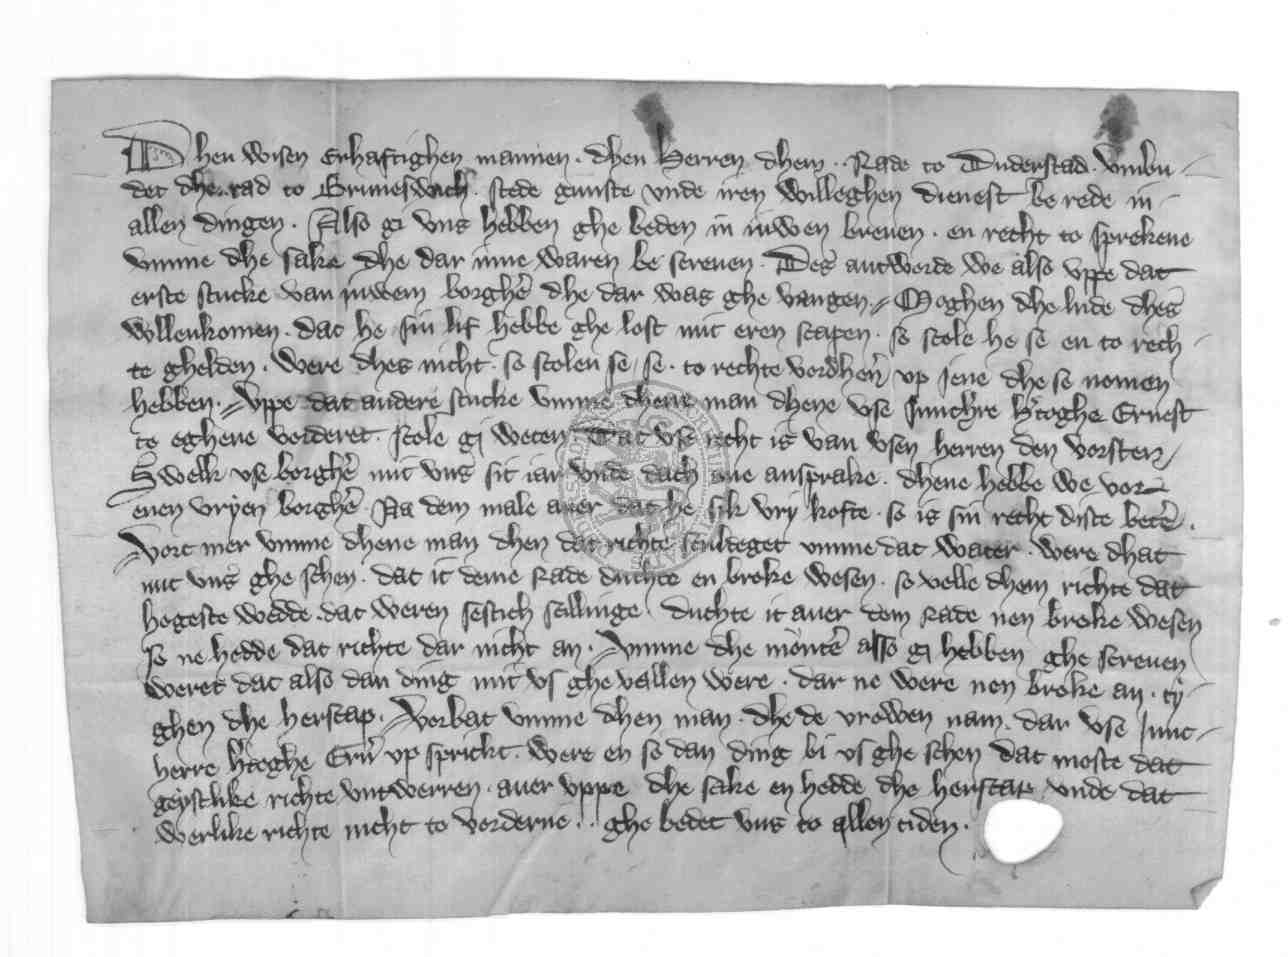 Dhen wisen Erhaftighen mannen . dhen Herren dhem . Rade to Duderstad . vnbu-
det dhe rad to Bruneswich . stede gunste vnde iren willeghen dienest be rede in
allen dingen . Also gi vns hebben ghe beden in iuwen breuen . en recht to sprekene
vmme dhe sake dhe dar inne waren be screuen . Des antwerde we also vppe dat
erste stucke van iuwem borgher dhe dar was ghe vangen . Moghen dhe lude dhes
vollenkomen . dat he sin lif hebbe ghe lost mit eren scapen . so scole he se en to rech-
te ghelden . were dhes nicht . so scolen se se . to rechte vordhern vp iene dhe se nomen
hebben . Vppe dat andere stucke vmme dhene man dhene vse Junchere hertoghe Ernest
to eghene vorderet . scole gi weten . Dat vse recht is van vsen herren den vorsten
Swelk vse borgher mit vns sit iar vnde dach ane ansprake . dhene hebbe we vor
enen vryen borgher . Na dem male auer dat he sik vry kofte . so is sin recht diste beter .
Vort mer vmme dhene man dhen dat richte sculdeget vmme dat water . were dhat
mit vns ghe schen . dat it deme Rade duchte en broke wesen . so velle dhem richte dat
hogeste wedde . dat weren sestich scillinge . duchte it auer dem Rade nen broke wesen
so ne hedde dat richte dar nicht an . Vmme dhe monter also gi hebben ghe screuen
weret dat also dan ding mit vs ghe vallen were . dar ne were nen broke an . ty-
ghen dhe herscap . Vorbat vmme dhen man . dhe de vrowen nam . dar vse Junc-
herre hertoghe Ern vp spricht . were en so dan ding bi vs ghe schen dat moste dat
geystlike richte untwerren . auer vppe dhe sake en hedde dhe herscap vnde dat
werlike richte nicht to vorderne . . ghe bedet vns to allen tiden .